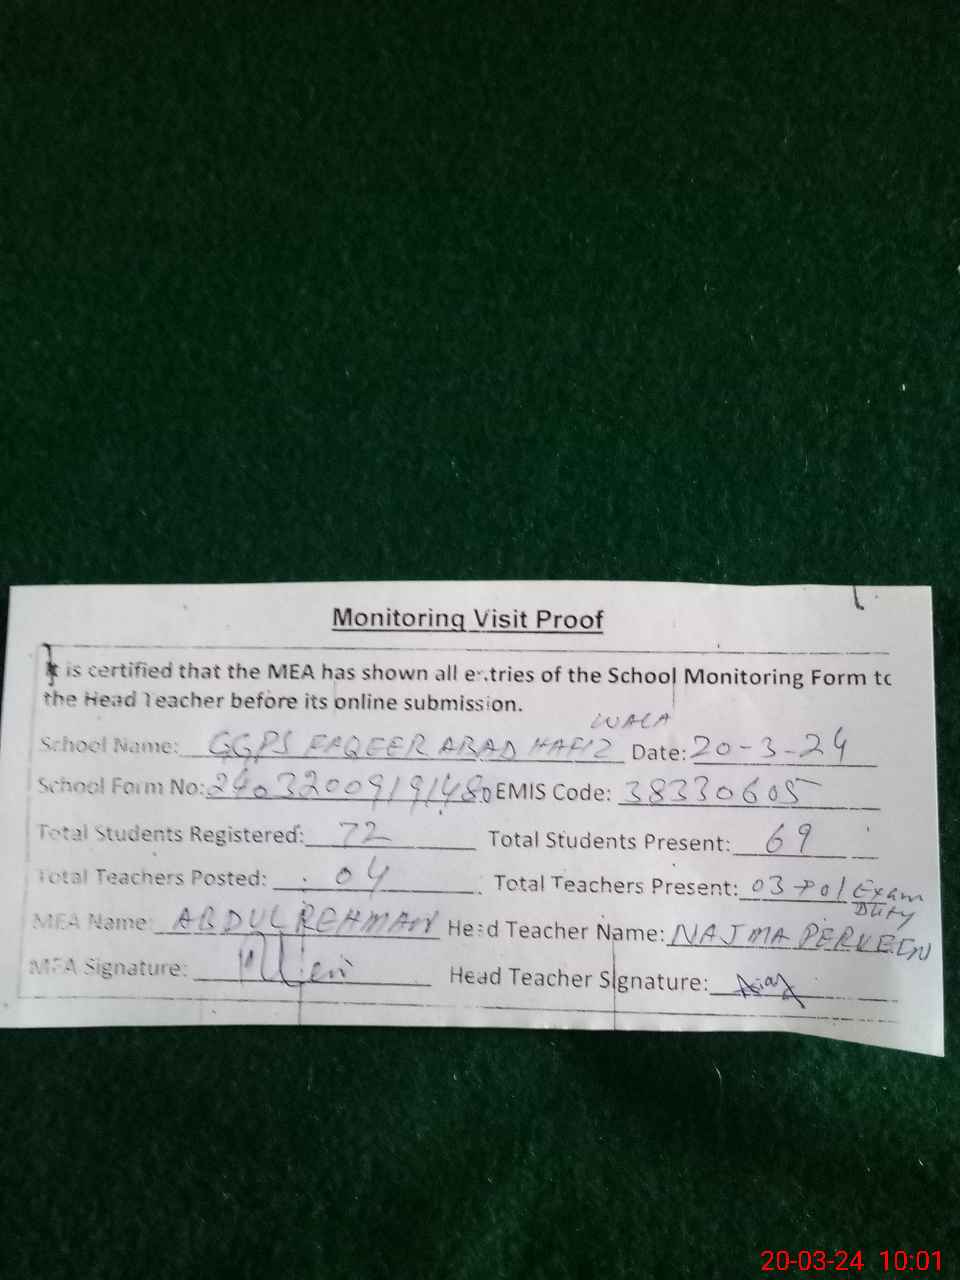 Monitoring Visit Proof
It is certified that the MEA has shown all entries of the School Monitoring Form to
the Head Teacher before its online submission.
WALA
School Name: GGPS FAQEER ABAD HAFIZ Date: 20-3-24
School Form No: 24032009191480 EMIS Code: 38330605
Total Students Registered: 72 Total Students Present: 69
Total Teachers Posted: 04 Total Teachers Present: 03+01 Exam
Duty
MEA Name: ABDUL REHMAN Head Teacher Name: NAJMA PERVEEN
MEA Signature: Head Teacher Signature:
20-03-24 10:01